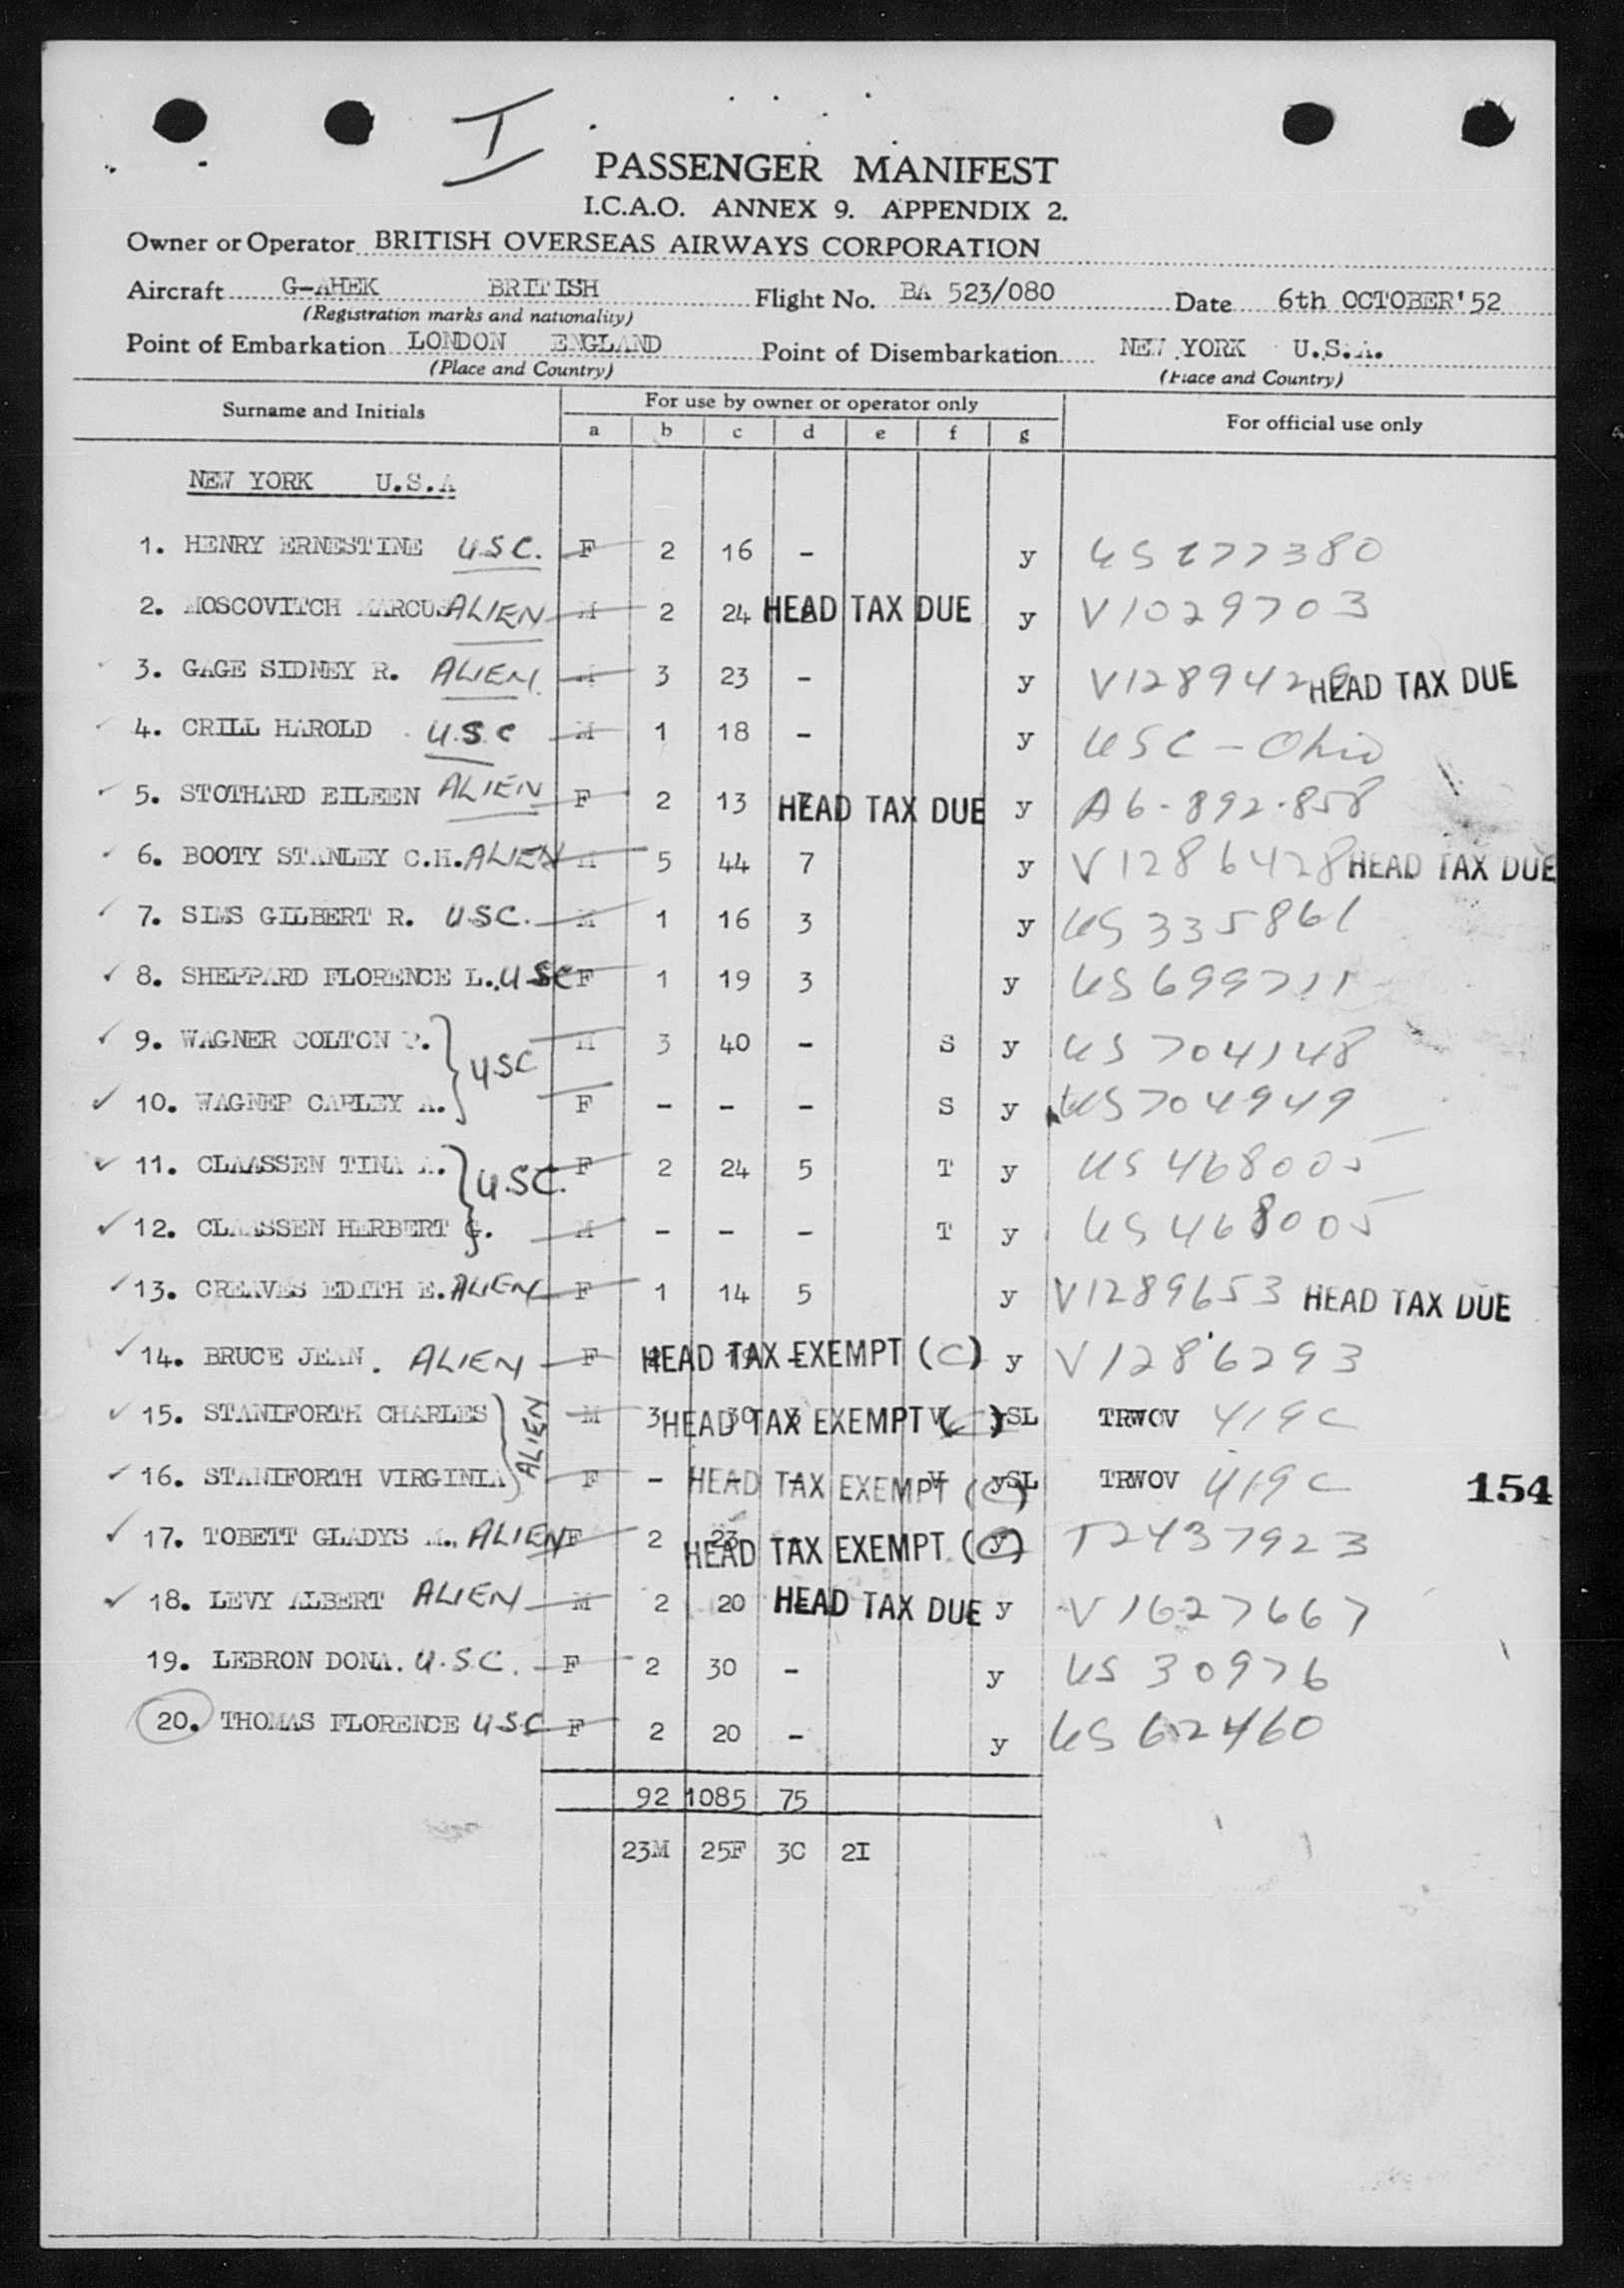 I
PASSENGER MANIFEST
I.C.A.O. ANNEX 9. APPENDIX 2.
Owner or Operator BRITISH OVERSEAS AIRWAYS CORPORATION
Aircraft G-AHEK BRITISH Flight No. BA 523/080 Date 6th OCTOBER'52
(Registration marks and nationality)
Point of Embarkation LONDON ENGLAND Point of Disembarkation NEW YORK U.S.A.
(Place and Country) (Place and Country)
Surname and Initials For use by owner or operator only For official use only
a b c d e f g
NEW YORK U.S.A
1. HENRY ERNESTINE U.S.C. F 2 16 - y US 277380
2. MOSCOVITCH MARCUS ALIEN M 2 24 HEAD TAX DUE y V1029703
3. GAGE SIDNEY R. ALIEN M 3 23 - y V1289429 HEAD TAX DUE
4. CRILL HAROLD U.S.C M 1 18 - y USC - Ohio
5. STOTHARD EILEEN ALIEN F 2 13 HEAD TAX DUE y A6-892-858
6. BOOTY STANLEY C.H. ALIEN M 5 44 7 y V1286428 HEAD TAX DUE
7. SIMS GILBERT R. U.S.C. M 1 16 3 y US 335861
8. SHEPPARD FLORENCE L. USC F 1 19 3 y US 699711
9. WAGNER COLTON P. M 3 40 - S y US 704148
USC
10. WAGNER CARLEY A. F - - - S y US 704949
11. CLAASSEN TINA A. F 2 24 5 T y US 468005
U.S.C.
12. CLAASSEN HERBERT G. M - - - T y US 468005
13. GREAVES EDITH E. ALIEN F 1 14 5 y V1289653 HEAD TAX DUE
14. BRUCE JEAN. ALIEN F HEAD TAX EXEMPT (C) y V1286293
15. STANIFORTH CHARLES M 3 30 HEAD TAX EXEMPT (C) V ySL TRWOV 419C
ALIEN
16. STANIFORTH VIRGINIA F - - - HEAD TAX EXEMPT (C) V ySL TRWOV 419C
154
17. TOBETT GLADYS M. ALIEN F 2 23 HEAD TAX EXEMPT (C) y T2437923
18. LEVY ALBERT ALIEN M 2 20 HEAD TAX DUE y V1627667
19. LEBRON DONA. U.S.C. F 2 30 - y US 30976
20. THOMAS FLORENCE U.S.C F 2 20 - y US 62460
92 1085 75
23M 25F 3C 2I